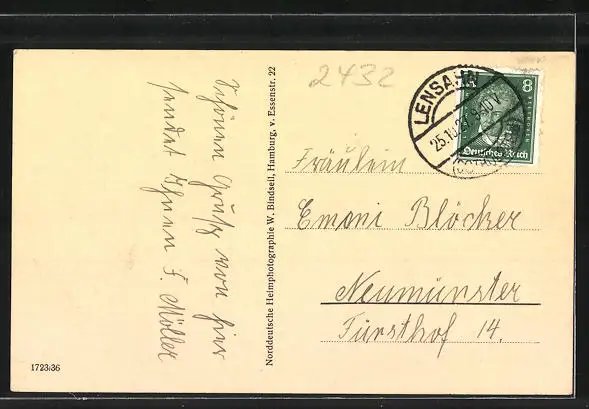 Schönen Gruß von hier
sendet Ihnen F. Möller
Norddeutsche Heimphotographie W. Bindseil, Hamburg, v. Essenstr. 22
2432
LENSAHN
25.10.
9-10 V
8
Deutsches Reich
Fräulein
Emmi Blöcker
Neumünster
Fürsthof 14.
1723/36